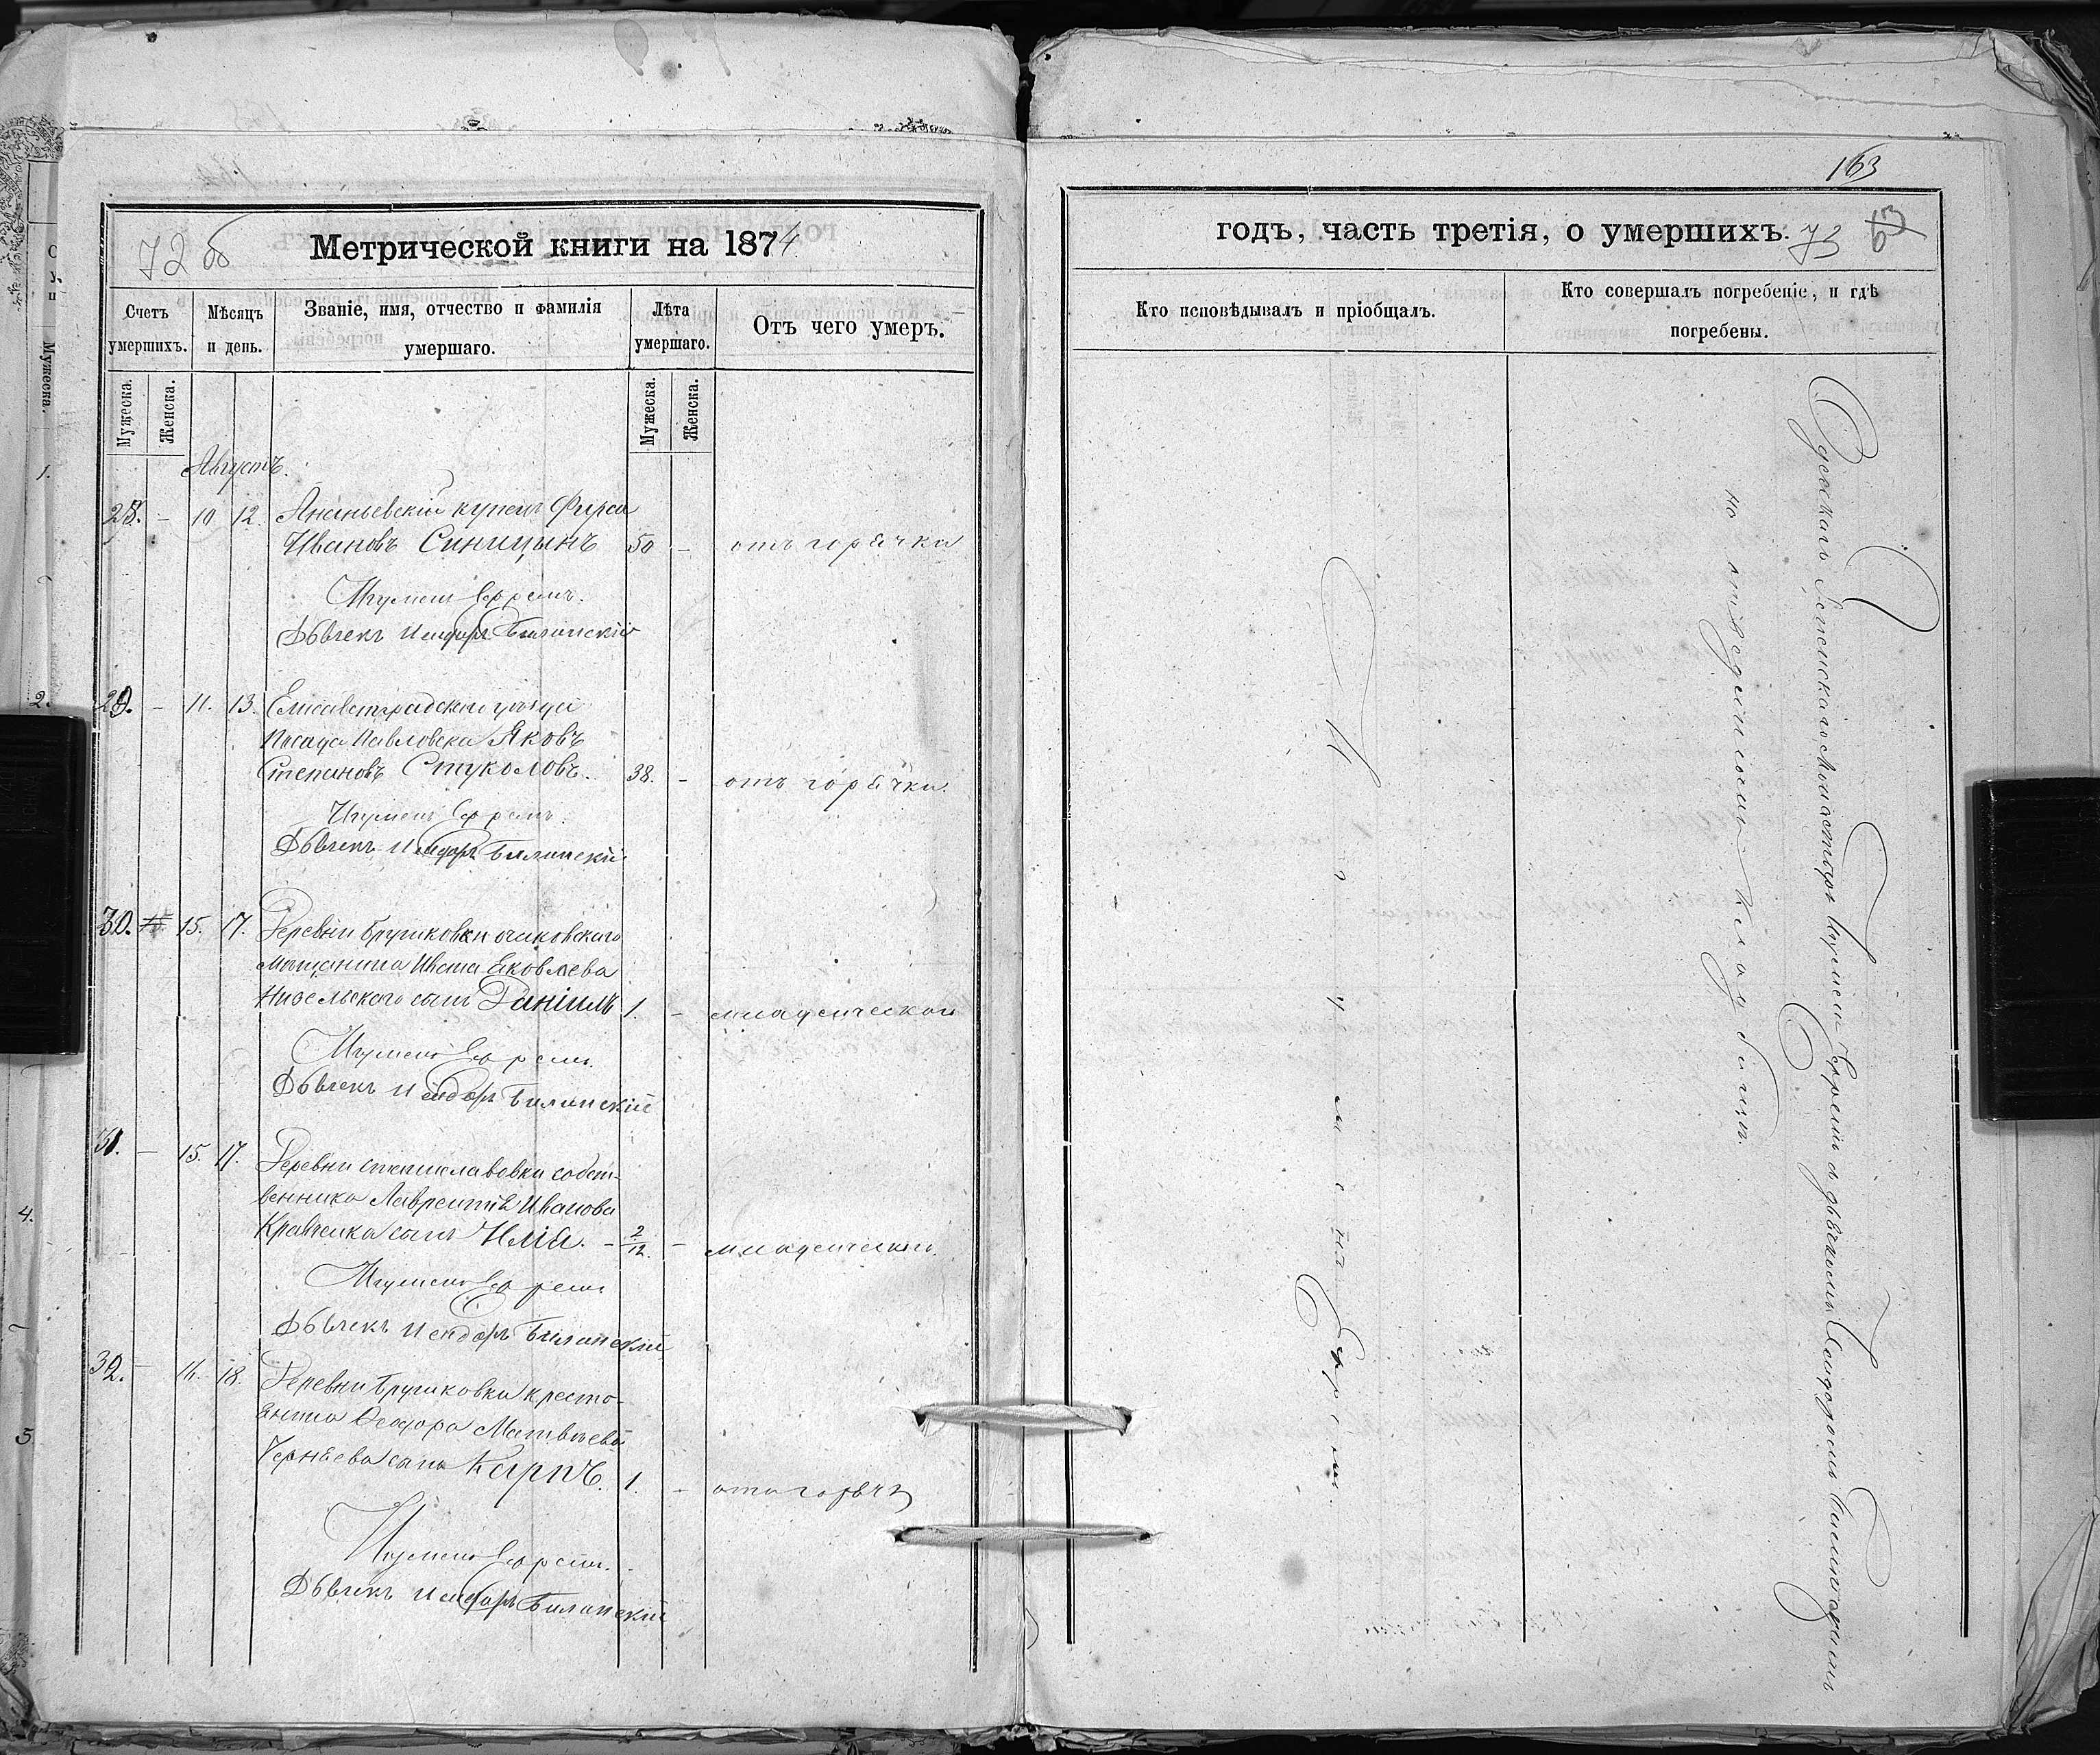 72 об
Метрической книги на 1874
Счетъ умершихъ.
Мѣсяцъ и день.
Званіе, имя, отчество и фамилія умершаго.
Лѣта умершаго.
Отъ чего умеръ.
Мужеска.
Женска.
Мужеска.
Женска.
Августъ.
28. – 10 12. Ананьевскій купецъ Фирсъ
Ивановъ Синицынъ 50 – отъ горячки
Игуменъ Ефремъ.
Дьячекъ Исидоръ Билинскій
29. – 11. 13. Елисаветградскаго уѣзда
Посада Павловска Яковъ
Степановъ Стуколовъ. 38. – отъ горячки.
Игуменъ Ефремъ.
Дьячекъ Исидоръ Билинскій
30. 15. 17. Деревни очаковскаго
мѣщанина Ивана Яковлева
сынъ Даніилъ 1. – младенческой
Игуменъ Ефремъ.
Дьячекъ Исидоръ Билинскій
31. – 15. 17. Деревни Станиславовки собст-
венника Лаврентія Иванова
Кравченка сынъ Илія. – 2/12. – младенческой.
Игуменъ Ефремъ
Дьячекъ Исидоръ Билинскій
32. – 16. 18. Деревни кресть-
янина Ѳеодора Матвѣева
Чернѣева сынъ Карпъ. 1. –
Игуменъ Ефремъ.
Дьячекъ Исидоръ Билинскій
163
годъ, часть третія, о умершихъ.
73
63
Кто исповѣдывалъ и пріобщалъ.
Кто совершалъ погребеніе, и гдѣ погребены.
Игуменъ Ефремъ.
Одесскаго Успенскаго Монастыря Игуменъ Ефремъ съ дьячкомъ Исидоромъ Билинскимъ
на отведенномъ кладбищѣ.